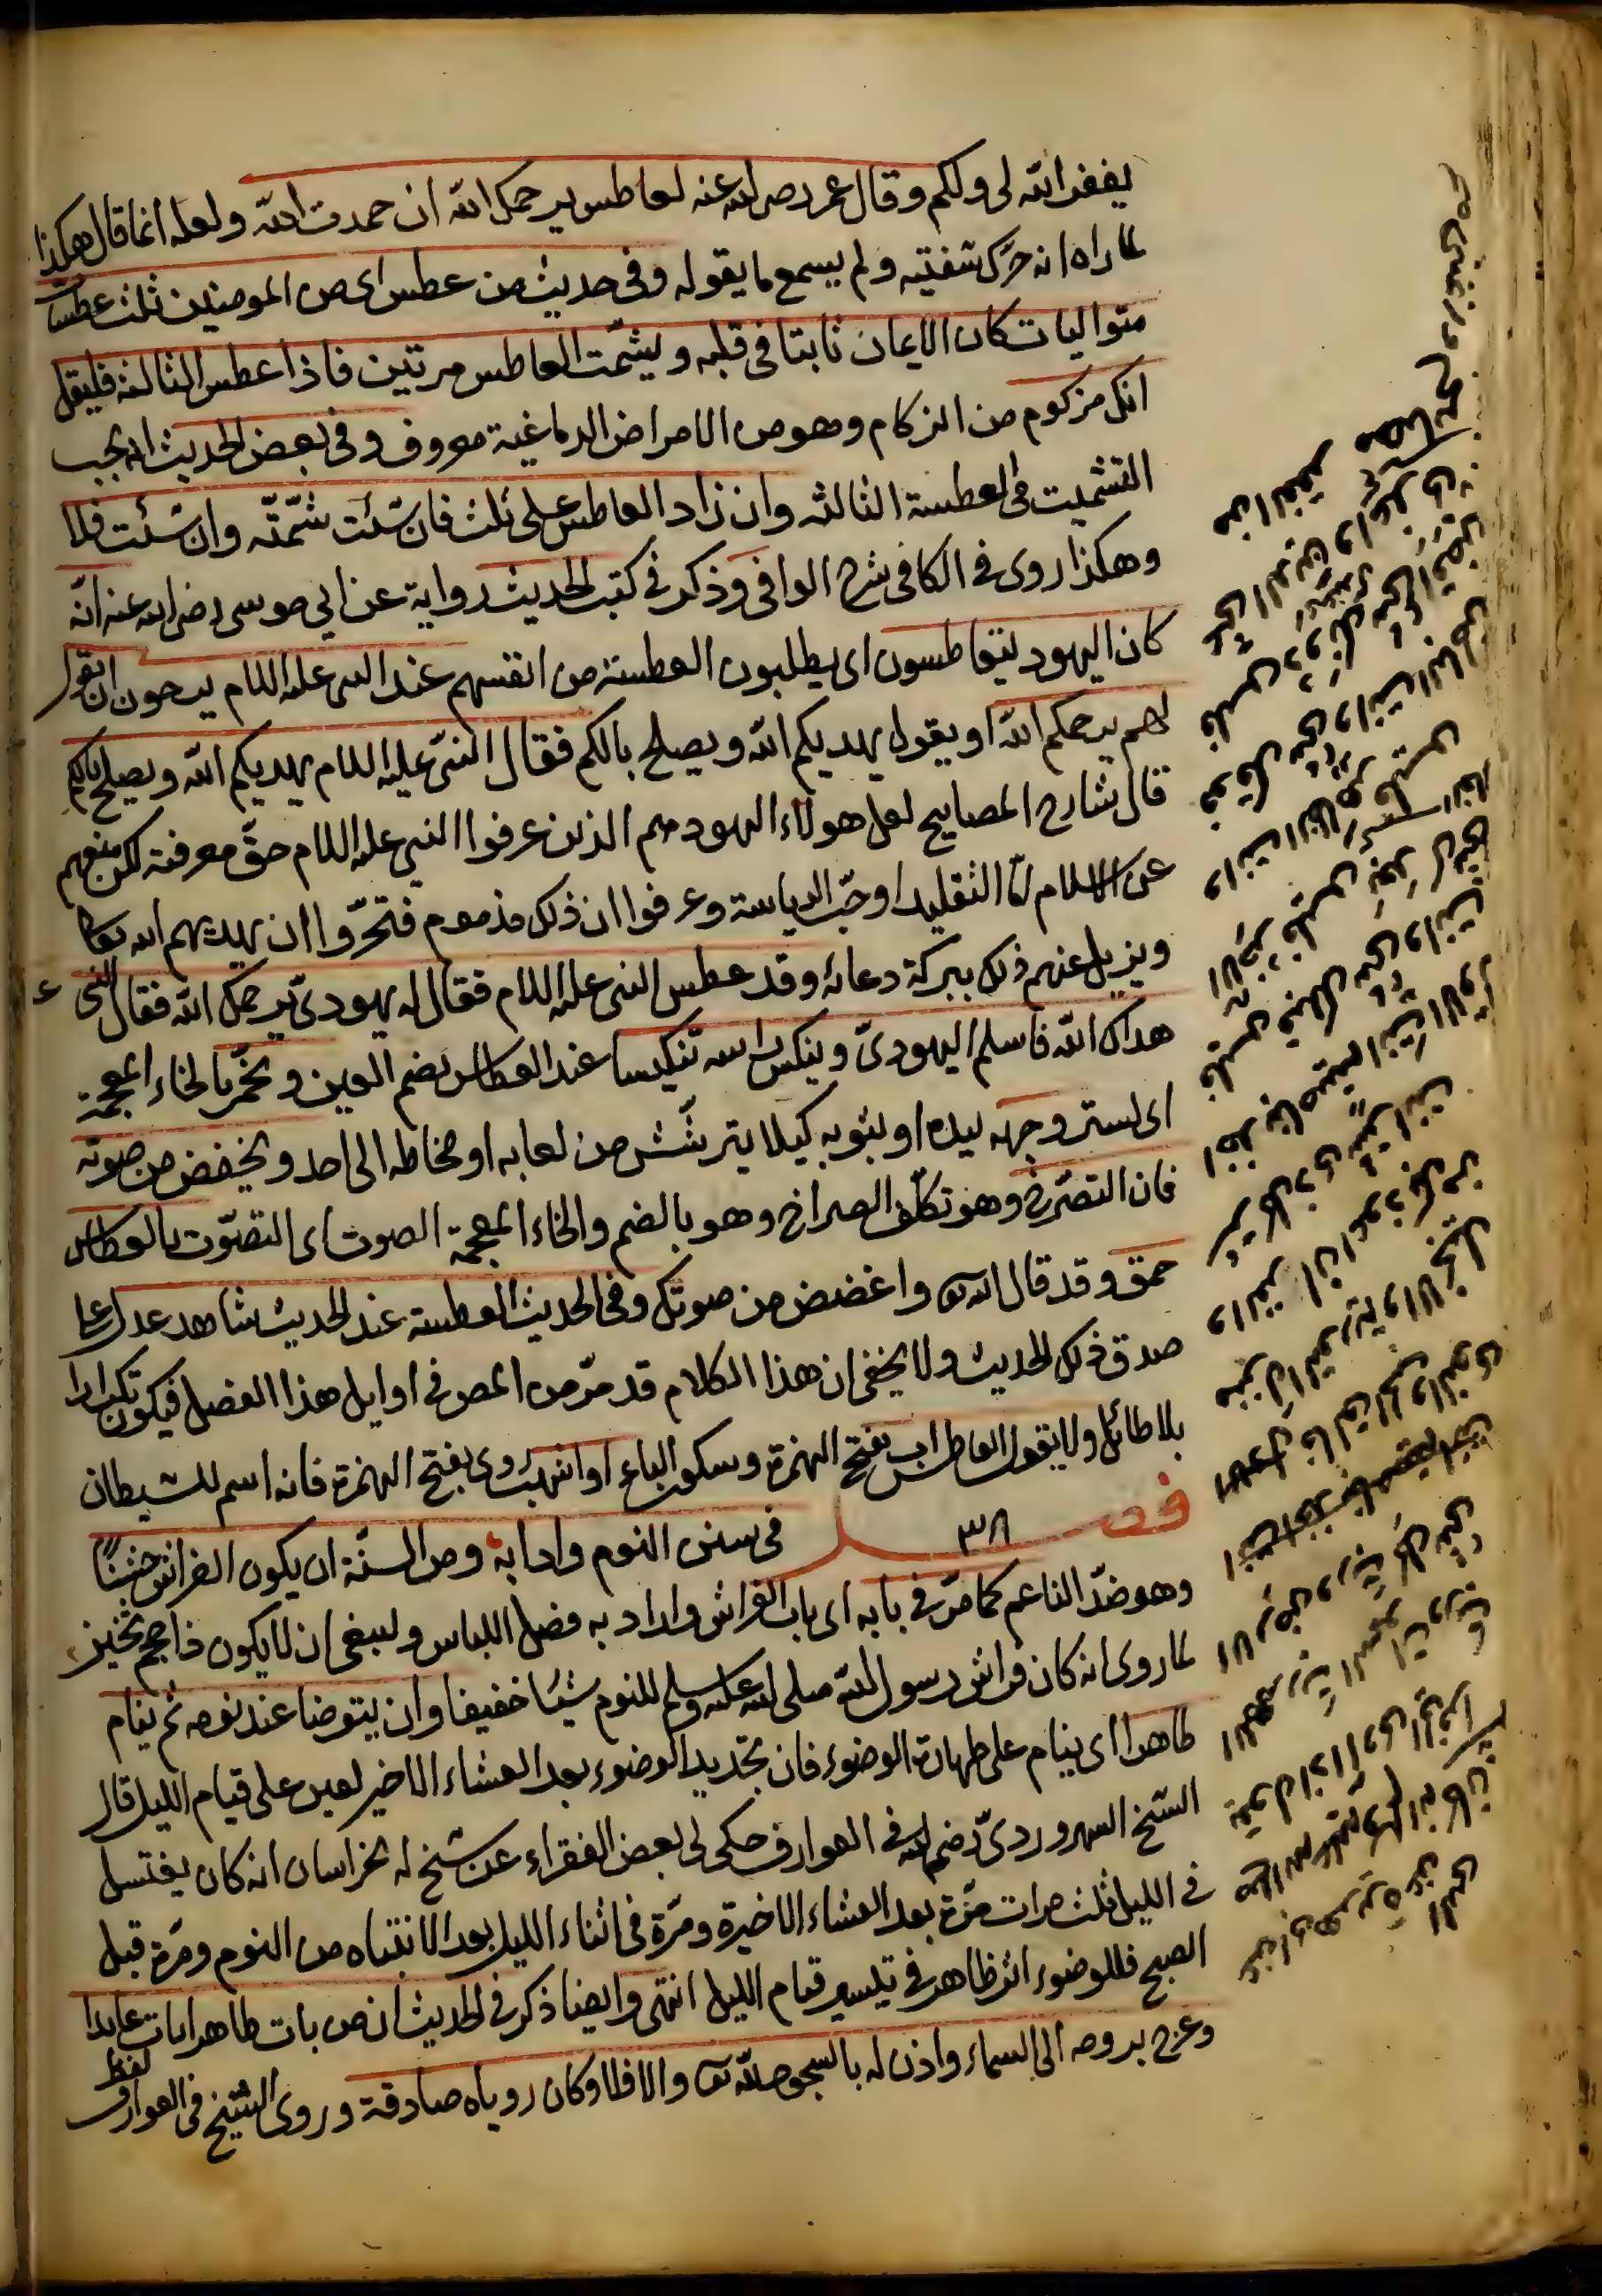 يغفر الله لى ولكم وقال عمر رضى الله عنه لعاطس يرحمك الله ان حمدت الله ولعله انما قال هكذا
لما راه انه حرّك شفتيه ولم يسمع ما يقوله وفى حديث من عطس اى من المومنين ثلث عطسات
متواليات كان الايمان ثابتا فى قلبه ويشمّت العاطس مرتين فاذا عطس الثالثة فليقل
انك مزكوم من الزكام وهو من الامراض الدماغية معروف وفى بعض الحديث انه يجب
التشميت فى العطسة الثالثه وان زاد العاطس على ثلث فان شئت شمّتّه وان شئت فلا
وهكذا روى فى الكافى شرح الوافى وذكر فى كتب الحديث رواية عن ابى موسى رضى الله عنه انّه
كان اليهود يتعاطسون اى يطلبون العطسة من انفسهم عند النبى عليه السلام يرجون ان يقول
لهم يرحمكم الله او يقول يهديكم الله ويصلح بالكم فقال النبىّ عليه السلام يهديكم الله ويصلح بالكم
قال شارح المصابيح لعل هولاء اليهود هم الذين عرفوا النبى عليه السلام حقّ معرفته لكن منعهم
عن الاسلام امّا التقليد او حبّ الرياسة وعرفوا ان ذلك مذموم فتحرّوا ان يهديهم الله تعالى
ويزيل عنهم ذلك ببركة دعائه وقد عطس النبى عليه السلام فقال له يهودىّ يرحمك الله فقال النبى ع
هداك الله فاسلم اليهودىّ وينكس راسه تنكيسا عند العطاس بضم العين ويخمّر بالخاء المعجمة
اى يستر وجهه بيده او بثوبه كيلا يترشّش من لعابه او مخاطه الى احد ويخفض من صوته
فان التصرّخ وهو تكلّف الصراخ وهو بالضم والخاء المعجمة الصوت اى التصوّت بالعطاس
حمق وقد قال الله تعالى واغضض من صوتك وفى الحديث العطسة عند الحديث شاهد عدل على
صدق ذلك الحديث ولا يخفى ان هذا الكلام قد مرّ من المص فى اوايل هذا الفصل فيكون تكرارا
بلا طائل ولا يقول العاطس اب بفتح الهمزة وسكون الباء او اشهب روى بفتح الهمزة فانه اسم للشيطان
فصل ٣٨ فى سنن النوم وادابه ومن السنّة ان يكون الفراش خشنًا
وهو ضدّ الناعم كما مرّ فى بابه اى باب الفراش واراد به فضل اللباس وينبغى ان لا يكون ذا حجم ثخين
لما روى انه كان فراش رسول الله صلى الله عليه وسلم للنوم شيئا خفيفا وان يتوضا عند نومه ثم ينام
طاهرا اى ينام على طهارة الوضوء فان تجديد الوضوء بعد العشاء الاخير يعين على قيام الليل قال
الشيخ السهروردىّ رضى الله فى العوارف حكى لى بعض الفقراء عن شيخ له بخراسان انه كان يغتسل
فى الليل ثلث مرات مرّة بعد العشاء الاخيرة ومرّة فى اثناء الليل بعد الانتباه من النوم ومرّة قبل
الصبح فللوضوء اثر ظاهر فى تيسير قيام الليل انتهى وايضا ذكر فى الحديث ان من بات طاهرا بات عابدا
وعرج بروحه الى السماء واذن له بالسجود لله تعالى والا فلا وكان روياه صادقة وروى الشيخ فى العوارف لفظ
عن ابى هريرة عن النبى
صلى الله عليه وسلم انه كان
يقول اذا اوى الى فراشه
اللهم رب السموات ورب
الارض ورب كل شىء
فالق الحب والنوى
منزل التورية والانجيل
اعوذ بك من
انت الاول
فليس قبلك شىء وانت
الاخر فليس بعدك شىء
وانت الظاهر فليس
فوقك شىء وانت الباطن
فليس دونك شىء اقض
عنى الدين واغننى
من الفقر